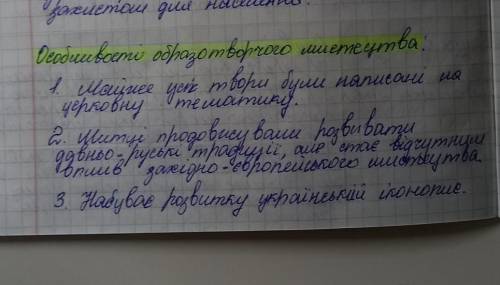 захистом для населення.
Особливості образотворчого мистецтва:
1. Майже усі твори були написані на
церковну тематику.
2. Митці продовжували розвивати
давньо-руські традиції, але стає відчутним
вплив західно-європейського мистецтва.
3. Набуває розвитку український іконопис.